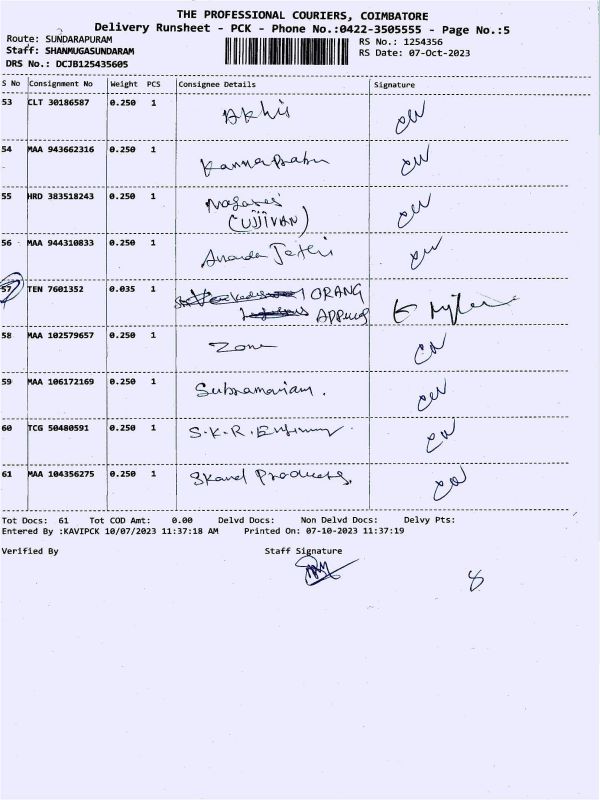 THE PROFESSIONAL COURIERS, COIMBATORE
Delivery Runsheet - PCK - Phone No.:0422-3505555 - Page No.:5
Route: SUNDARAPURAM
RS No.: 1254356
Staff: SHANMUGASUNDARAM
RS Date: 07-Oct-2023
DRS No.: DCJB125435605
S No Consignment No Weight PCS Consignee Details Signature
53 CLT 30186587 0.250 1 Akhil
54 MAA 943662316 0.250 1 KannaBabu
55 HRD 383518243 0.250 1
(UJJIVAN)
56 MAA 944310833 0.250 1 Ananda
57 TEN 7601352 0.035 1 ORANG
58 MAA 102579657 0.250 1 Zone
59 MAA 106172169 0.250 1 Subramaniam.
60 TCG 50480591 0.250 1 S.K.R.
61 MAA 104356275 0.250 1 Skand Products,
Tot Docs: 61 Tot COD Amt: 0.00 Delvd Docs: Non Delvd Docs: Delvy Pts:
Entered By :KAVIPCK 10/07/2023 11:37:18 AM Printed On: 07-10-2023 11:37:19
Verified By Staff Signature
8